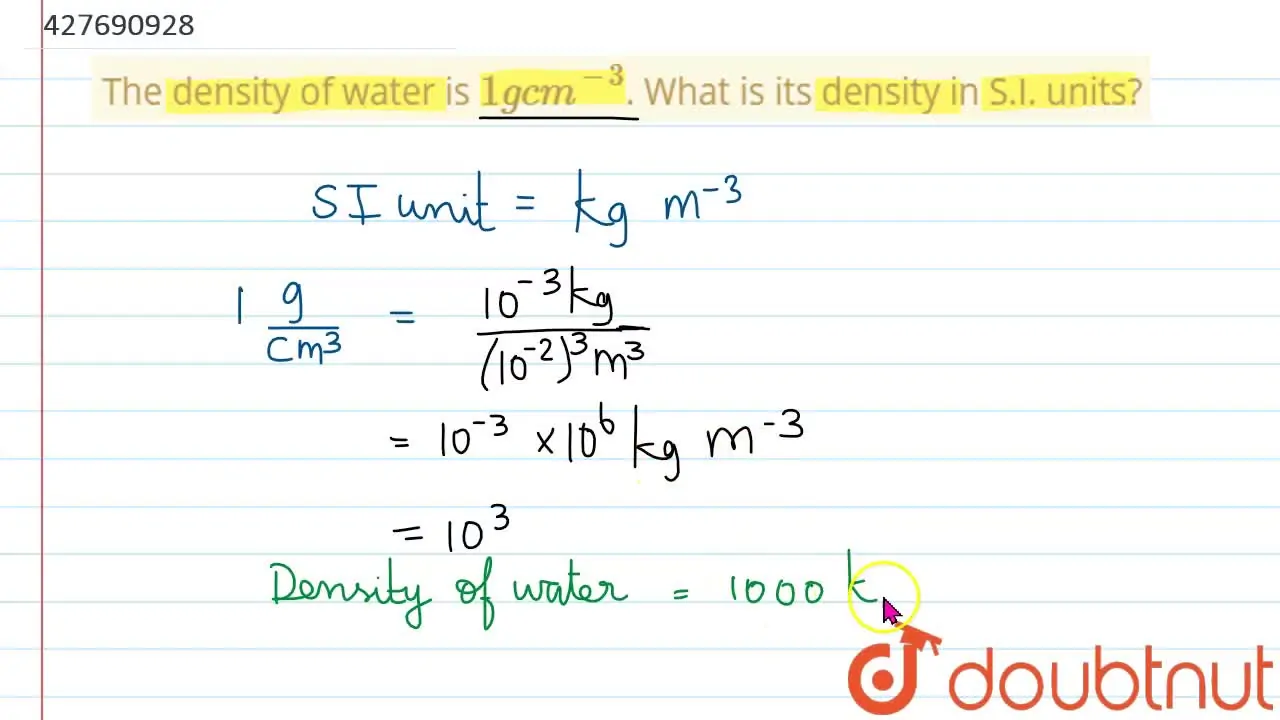 427690928
The density of water is 1gcm⁻³. What is its density in S.I. units?
SI unit = kg m⁻³
1 g/cm³ = 10⁻³ kg/(10⁻²)³ m³
= 10⁻³ × 10⁶ kg m⁻³
= 10³
Density of water = 1000 k
doubtnut